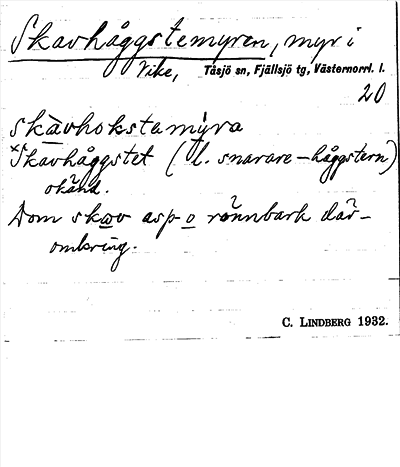 Skavhåggstemyren, myr i
Vike, Tåsjö sn, Fjällsjö tg, Västernorrl. l.
20
skàvhokstamýra
×Skavhåggstet (l. snarare -håggstern)
okänd.
Dom skov asp- o rönnbark där-
omkring.
C. LINDBERG 1932.